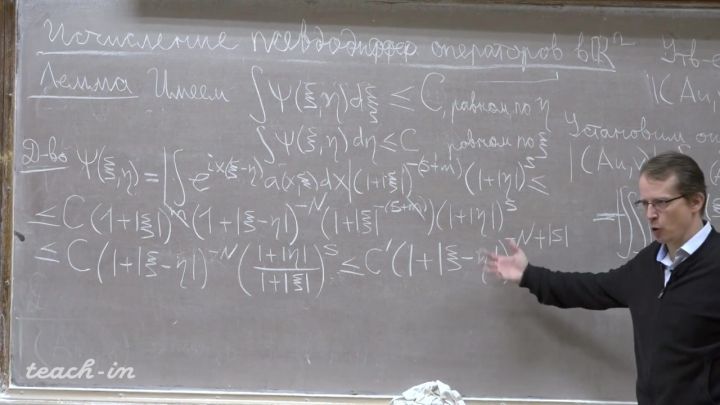 Исчисление псевдодифф операторов в ℝ²
Лемма Имеем ∫Ψ(ξ,η)dξ ≤ C, равном. по η
∫Ψ(ξ,η)dη ≤ C равном. по ξ
Д-во Ψ(ξ,η) = |∫e^{ix(ξ-η)} a(x,ξ)dx|(1+|ξ|)^{-(s+m)}(1+|η|)^s ≤
≤ C(1+|ξ|)^m(1+|ξ-η|)^{-N}(1+|ξ|^{-(s+m)})(1+|η|)^s
≤ C(1+|ξ-η|)^{-N}((1+|η|)/(1+|ξ|))^s ≤ C'(1+|ξ-η|)^{-N+|s|}
Утв-е
|(Au,
Установим
|(Au,v)|
=|∫∫
teach-in